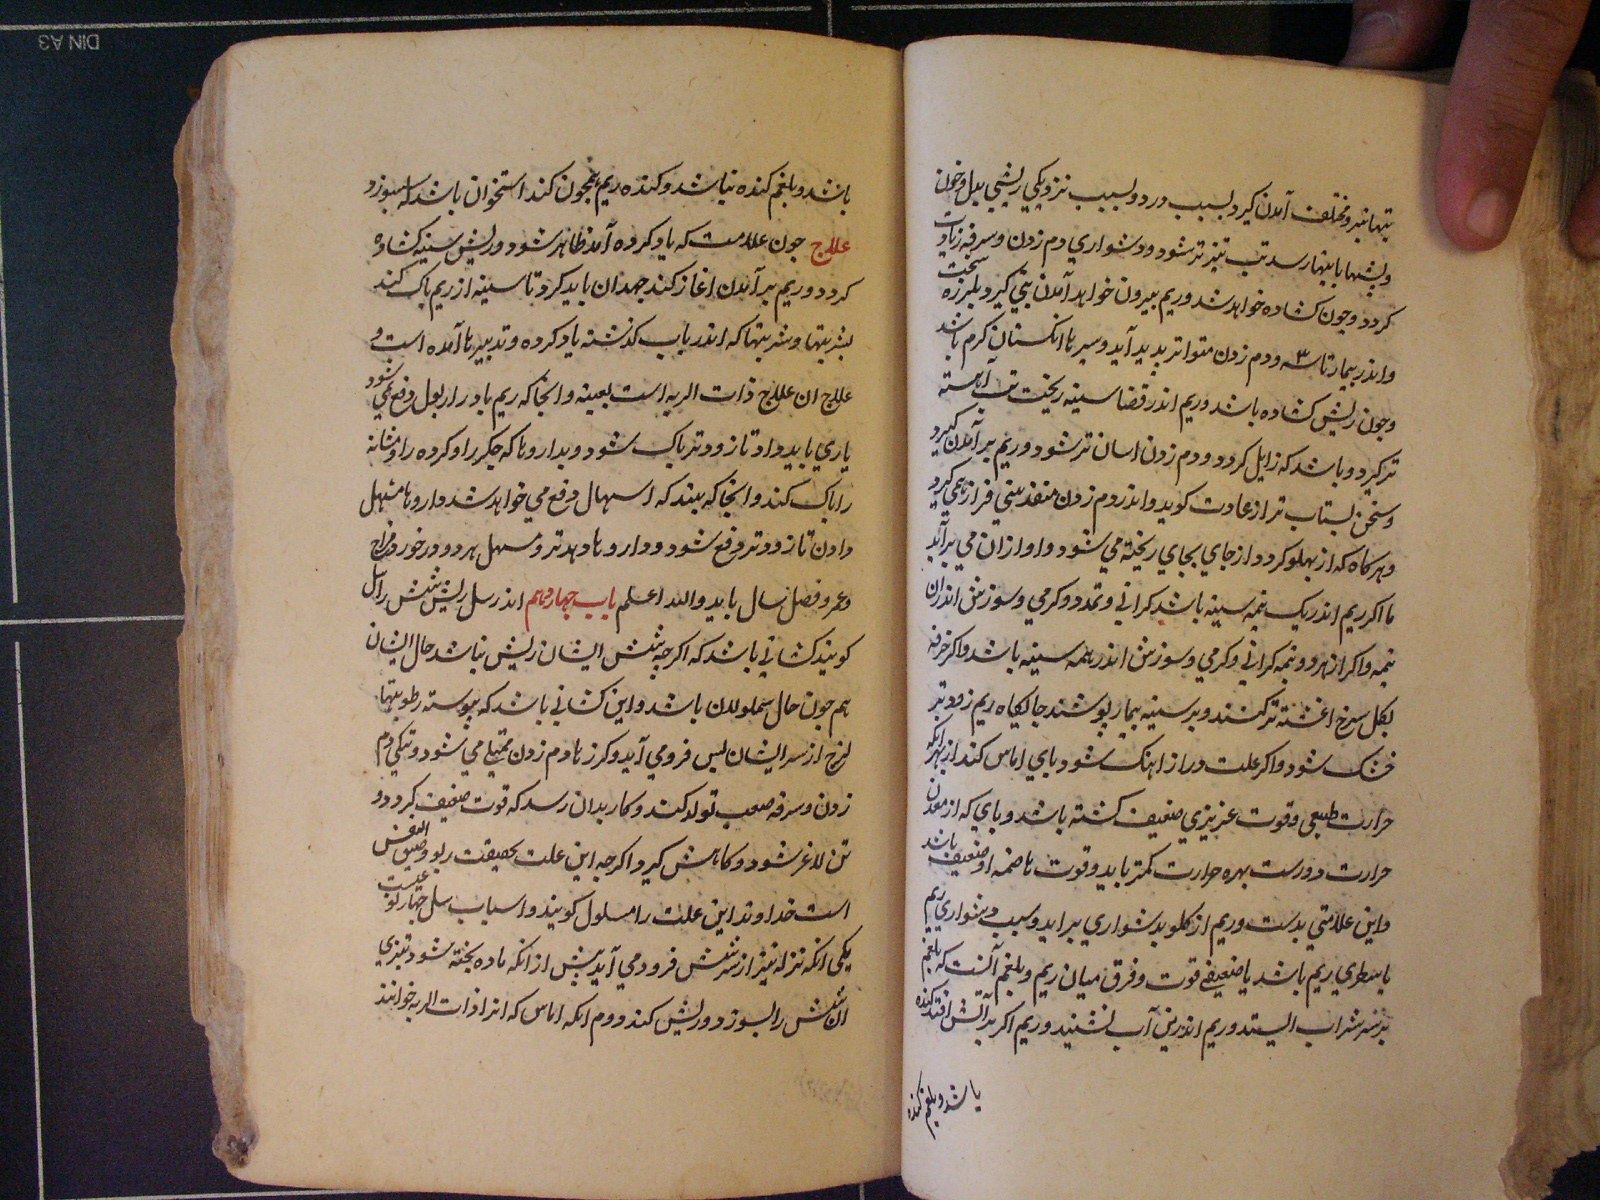 تبها تیز و مختلف آمدن کیرد بسبب درد و بسبب نزدیکی ریشی بدل و خون
و لبشها با بتنها رسد تب تیز تر شود و دشواری دم زدن و سرفه زیادت
کردد و چون کشاده خواهد شد و ریم بیرون خواهد آمدن تبی کیرد بلرزه سخت
و اندر بیمار تاسه و دم زدن متواتر بدید آید و سر ها انکستان کرم باشد
و چون ریش کشاده باشد و ریم اندر فضا سینه ریخت تب آهسته
تر کیرد و باشد که زایل کردد و دم زدن اسان تر شود و ریم بر آمدن کیرد
و سخن بستاب تر از عادت کوید و اندر دم زدن منفذ بینی فراز همی کیرد
و هر کاه که از بهلو کردد از جای بجای ریخته می شود و اواز ان می بر آید
ما اکر ریم اندر یک نیمه سینه باشد کرانی و تمدد و کرمی و سوزش اندر ان
نیمه و اکر از هر دو نیمه کرانی و کرمی و سوزش اندر همه سینه باشد و اکر خرقه
بکل سرخ اغشته تر کنند و بر سینه بیمار بوشند جایکاه ریم زودتر
خشک شود و اکر علت دراز اهنک شود بای اماس کند از بهر انکه
حرارت طبیعی و قوت غریزی ضعیف کشته باشد و بای که از معدن
حرارت دورست بهره حرارت کمتر یابد و قوت هاضمه او ضعیف باشد
و این علامتی بدست و ریم از کلو بدشواری بر اید و سبب دشواری ریم
یا سطبری ریم باشد یا ضعیفی قوت و فرق میان ریم و بلغم آنست که بلغم
بر سر شراب ایستد و ریم اندر بن آب نشنید و ریم اکر بر آتش افتد کنده
باشد و بلغم کنده
باشد و بلغم کنده نباشد و کنده ریم همجون کند استخوان باشد که بسوزد
علاج جون علامت که یاد کرده آمد ظاهر شود و ریش سینه کشاده
کردد و ریم بر آمدن اغاز کند جهد ان باید کرد تا سینه از ریم باک کند
بشربتها و شربتها که اندر باب کذشته یاد کرده و تدبیر ها آمده است و
علاج ان علاج ذات الریه است بعینه و انجا که ریم بادرار بول دفع می شود
یاری باید داد تا زودتر باک شود و بدارو ها که جکر را و کرده را و مثانه
را باک کند و انجا که بیند که اسهال دفع می خواهد شد دارو ها مسهل
دادن تا زودتر دفع شود و دارو ها دهد تر و مسهل هر دو در خور مزاج
و عمر و فصل سال باید و الله اعلم باب جهاردهم اندر سل ریش شش را سل
کویند کسانی باشد که اکرجه شش ایشان ریش نباشد حال ایشان
هم جون حال مسلولان باشد و این کسانی باشد که بیوسته رطوبتها
لزج از سر ایشان بس فرو می آید و کرز ها دم زدن ممتلی می شود و تنکی دم
زدن و سرفه صعب تولد کند و کار بدان رسد که قوت ضعیف کردد و
تن لاغر شود و کاهش کیرد و اکرجه این علت بحقیقت ربو و ضیق النفس
است خداوند این علت را مسلول کویند و اسباب سل جهار نوعیست
یکی انکه نزله تیز از سر شش فرود می آید بیش از انکه ماده بخته شود تیزی
ان شش را بسوزد و ریش کند دوم انکه اماس که انرا ذات الریه خوانند